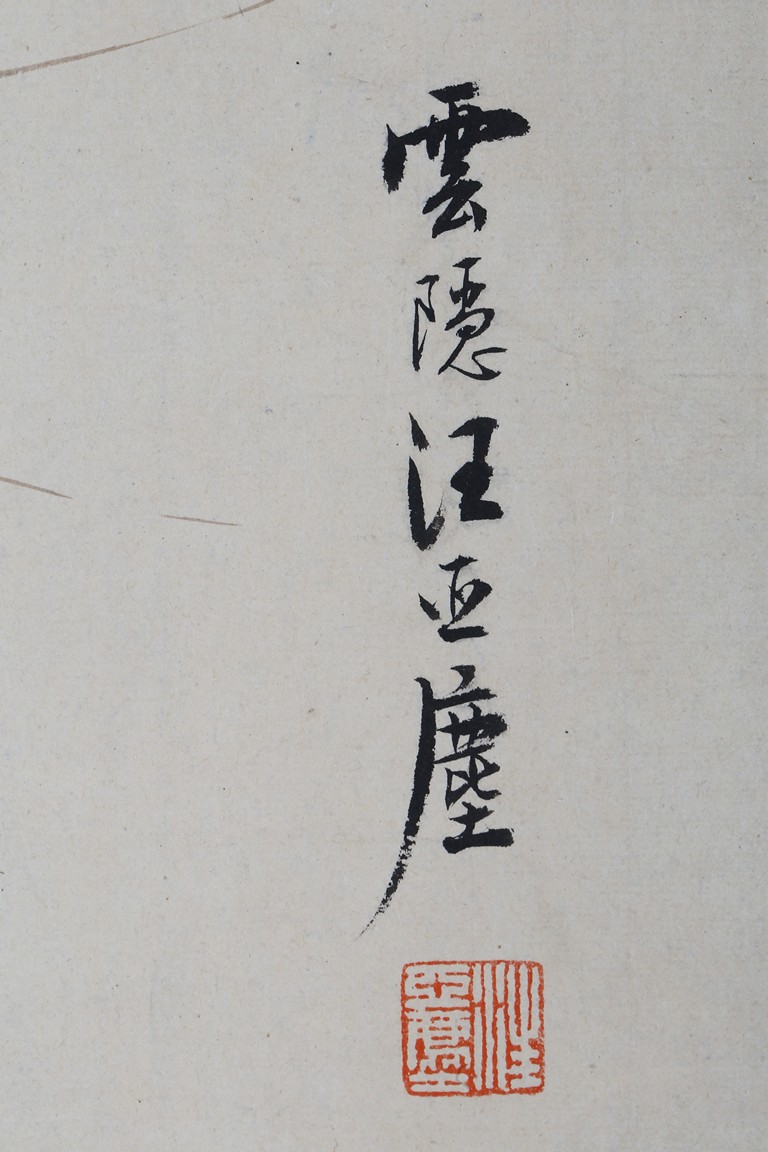 雲隱汪亞塵
汪亞塵